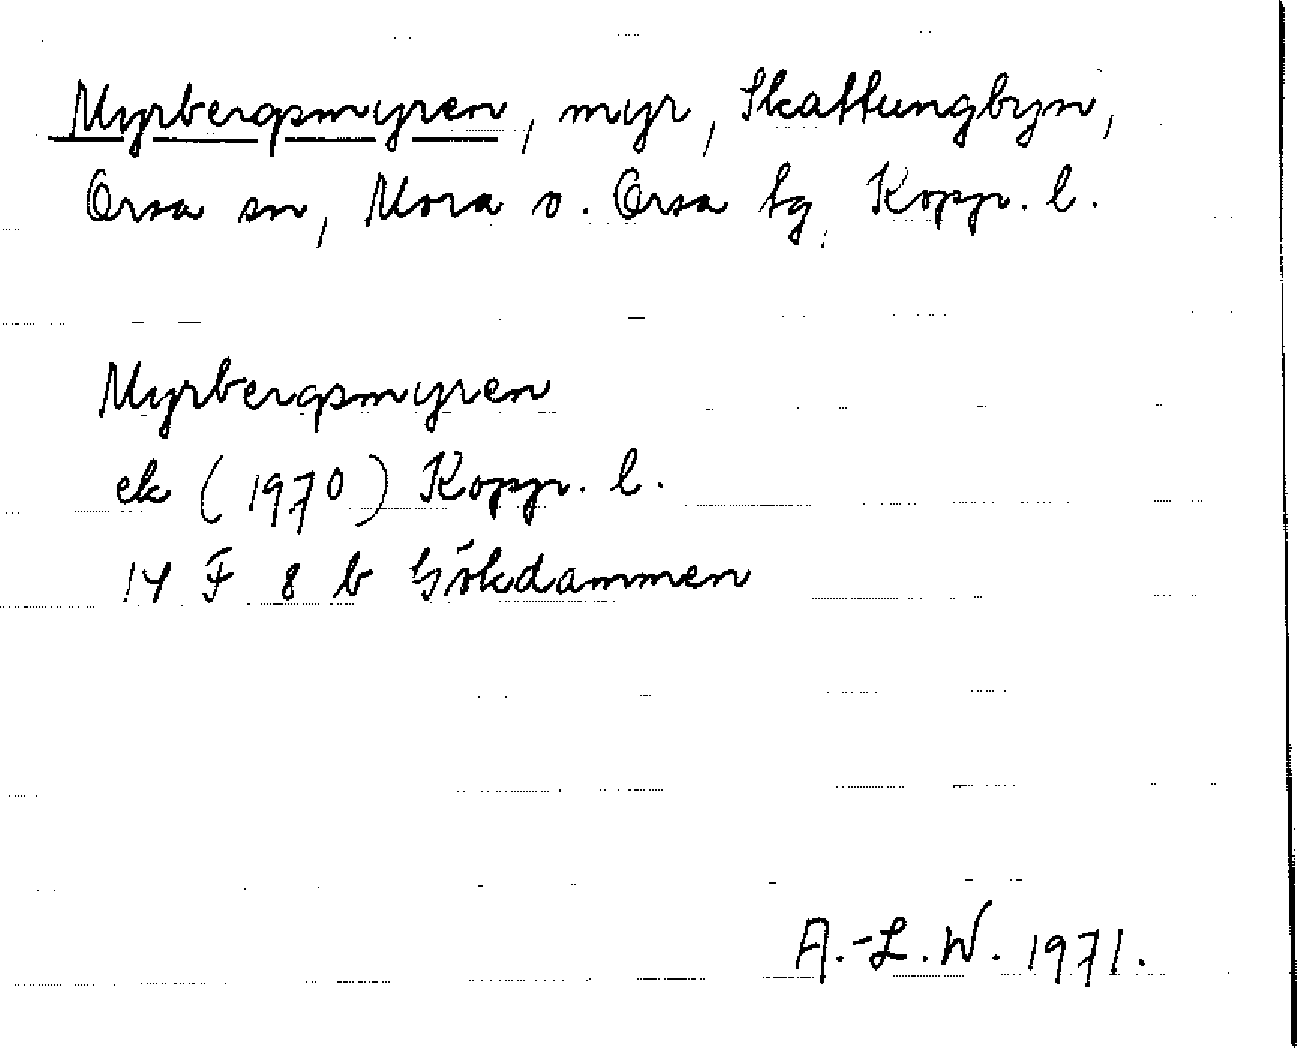 Myrbergsmyren, myr, Skattungbyn,
Orsa sn, Mora o. Orsa tg, Kopp. l.
Myrbergsmyren
ek (1970) Kopp. l.
14 F 8 b Gökdammen
A.-L. W. 1971.